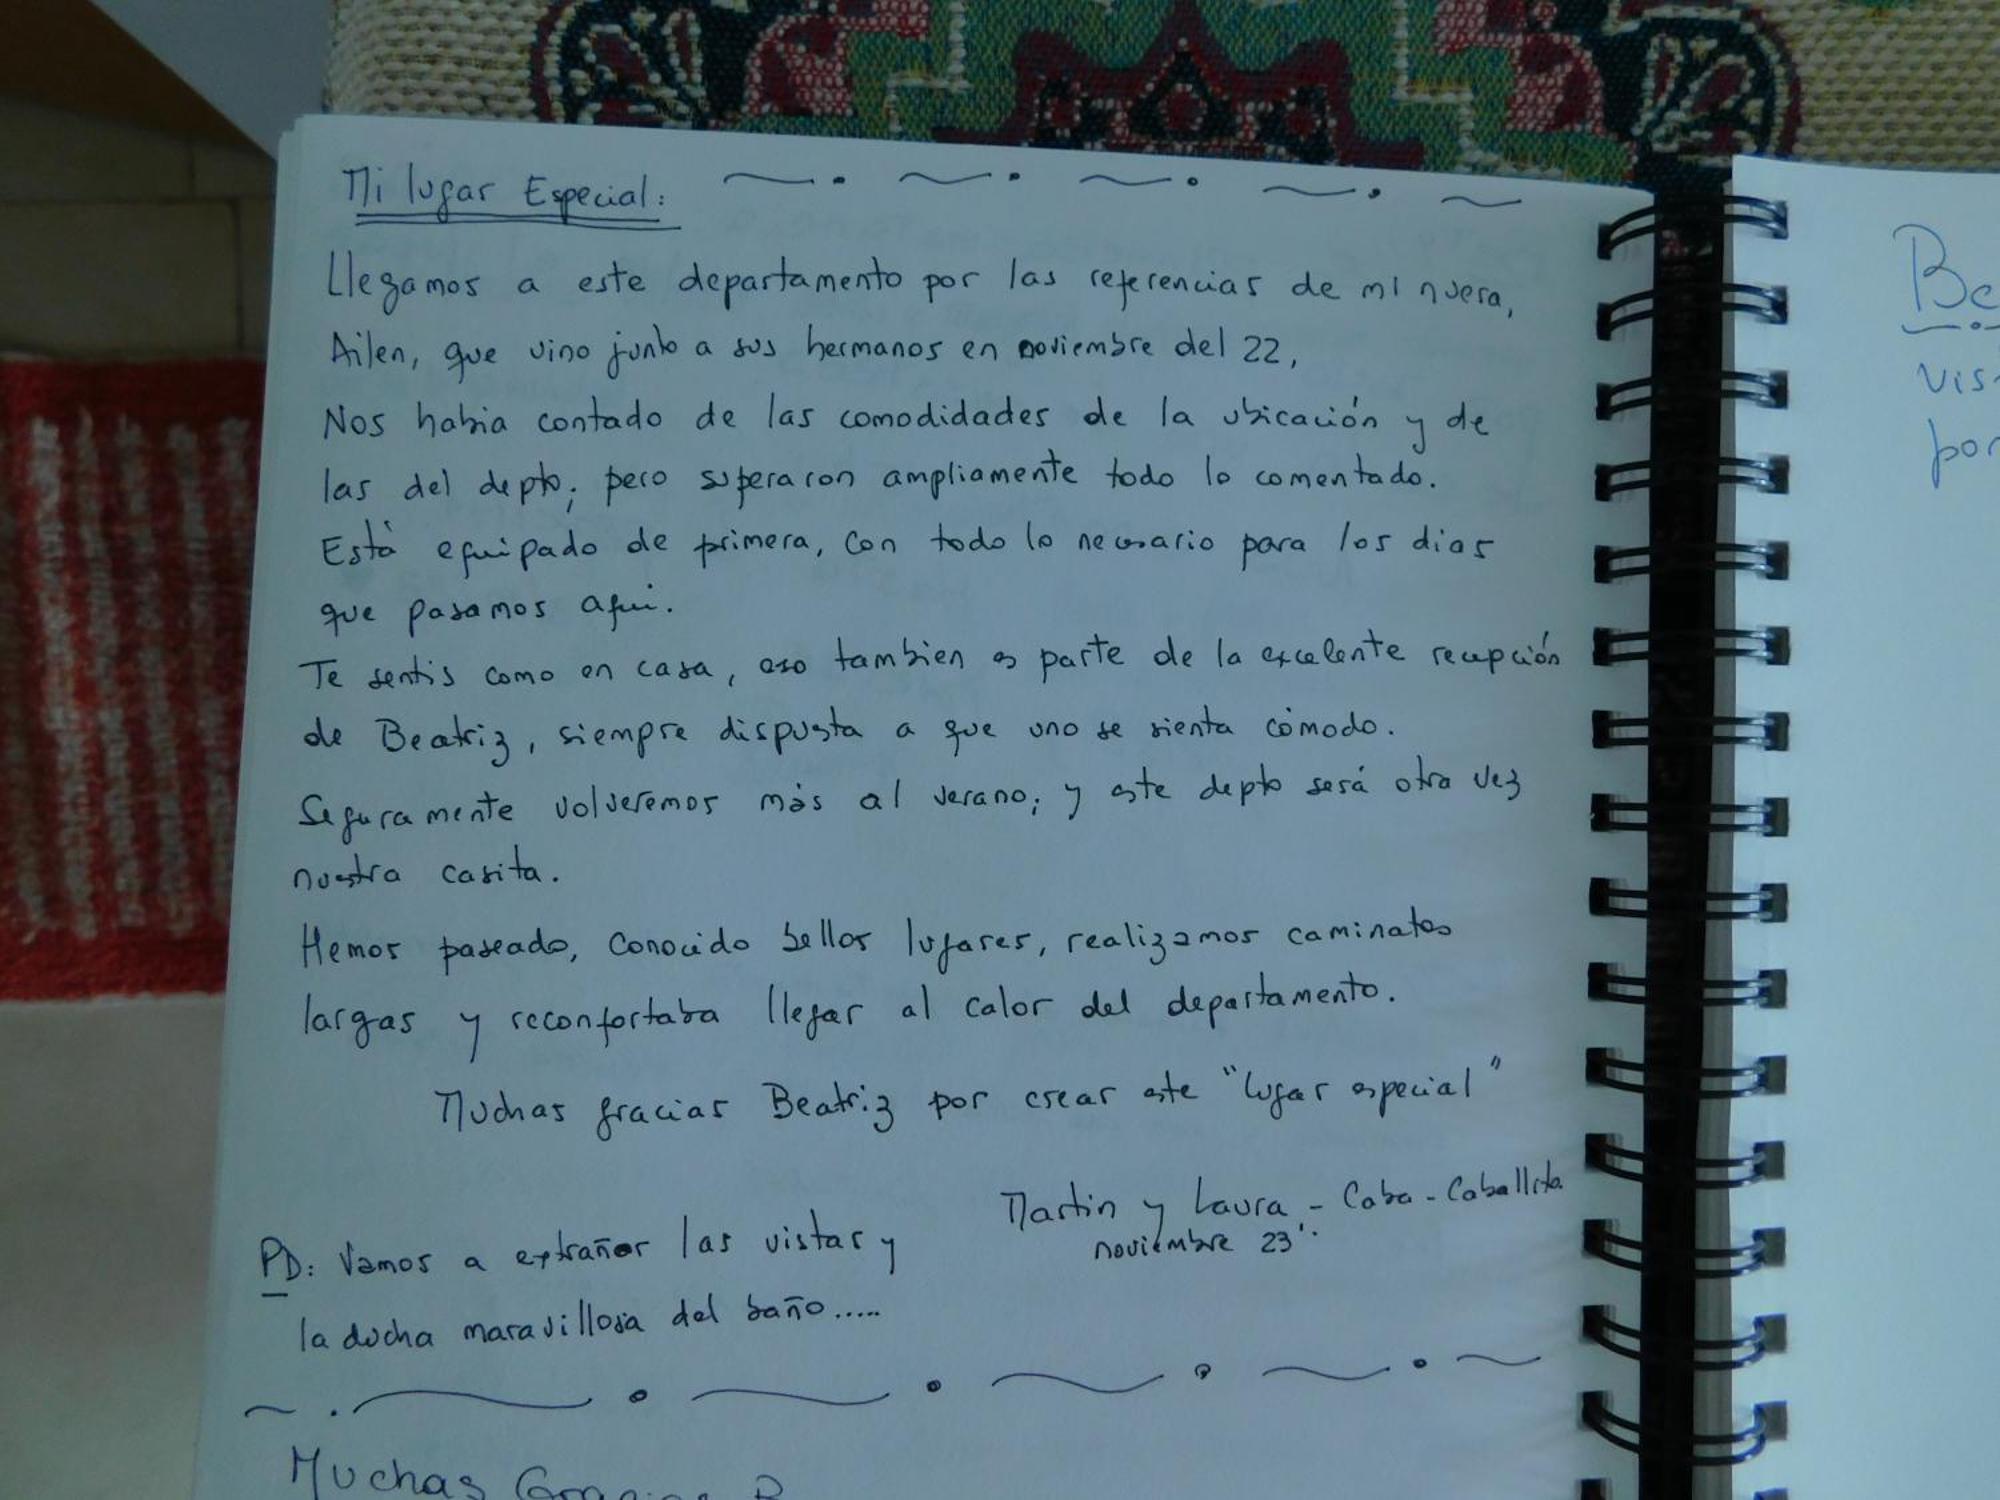 Mi lugar Especial:
Llegamos a este departamento por las referencias de mi nuera,
Ailen, que vino junto a sus hermanos en noviembre del 22,
Nos habia contado de las comodidades de la ubicación y de
las del depto; pero superaron ampliamente todo lo comentado.
Está equipado de primera, con todo lo necesario para los dias
que pasamos aqui.
Te sentis como en casa, eso tambien es parte de la excelente recepción
de Beatriz, siempre dispuesta a que uno se sienta cómodo.
Seguramente volveremos más al verano; y este depto será otra vez
nuestra casita.
Hemos paseado, conocido bellos lugares, realizamos caminatas
largas y reconfortaba llegar al calor del departamento.
Muchas gracias Beatriz por crear este "lugar especial"
Martin y Laura - Caba - Caballito
noviembre 23'.
PD: Vamos a extrañar las vistas y
la ducha maravillosa del baño.....
Muchas Gracias B
Be
vis
por